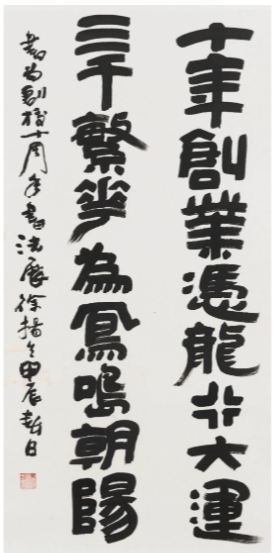 十年創業憑龍行大運
三千繁華為鳳鳴朝陽
書為創校十周年書法展徐揚生甲辰春日